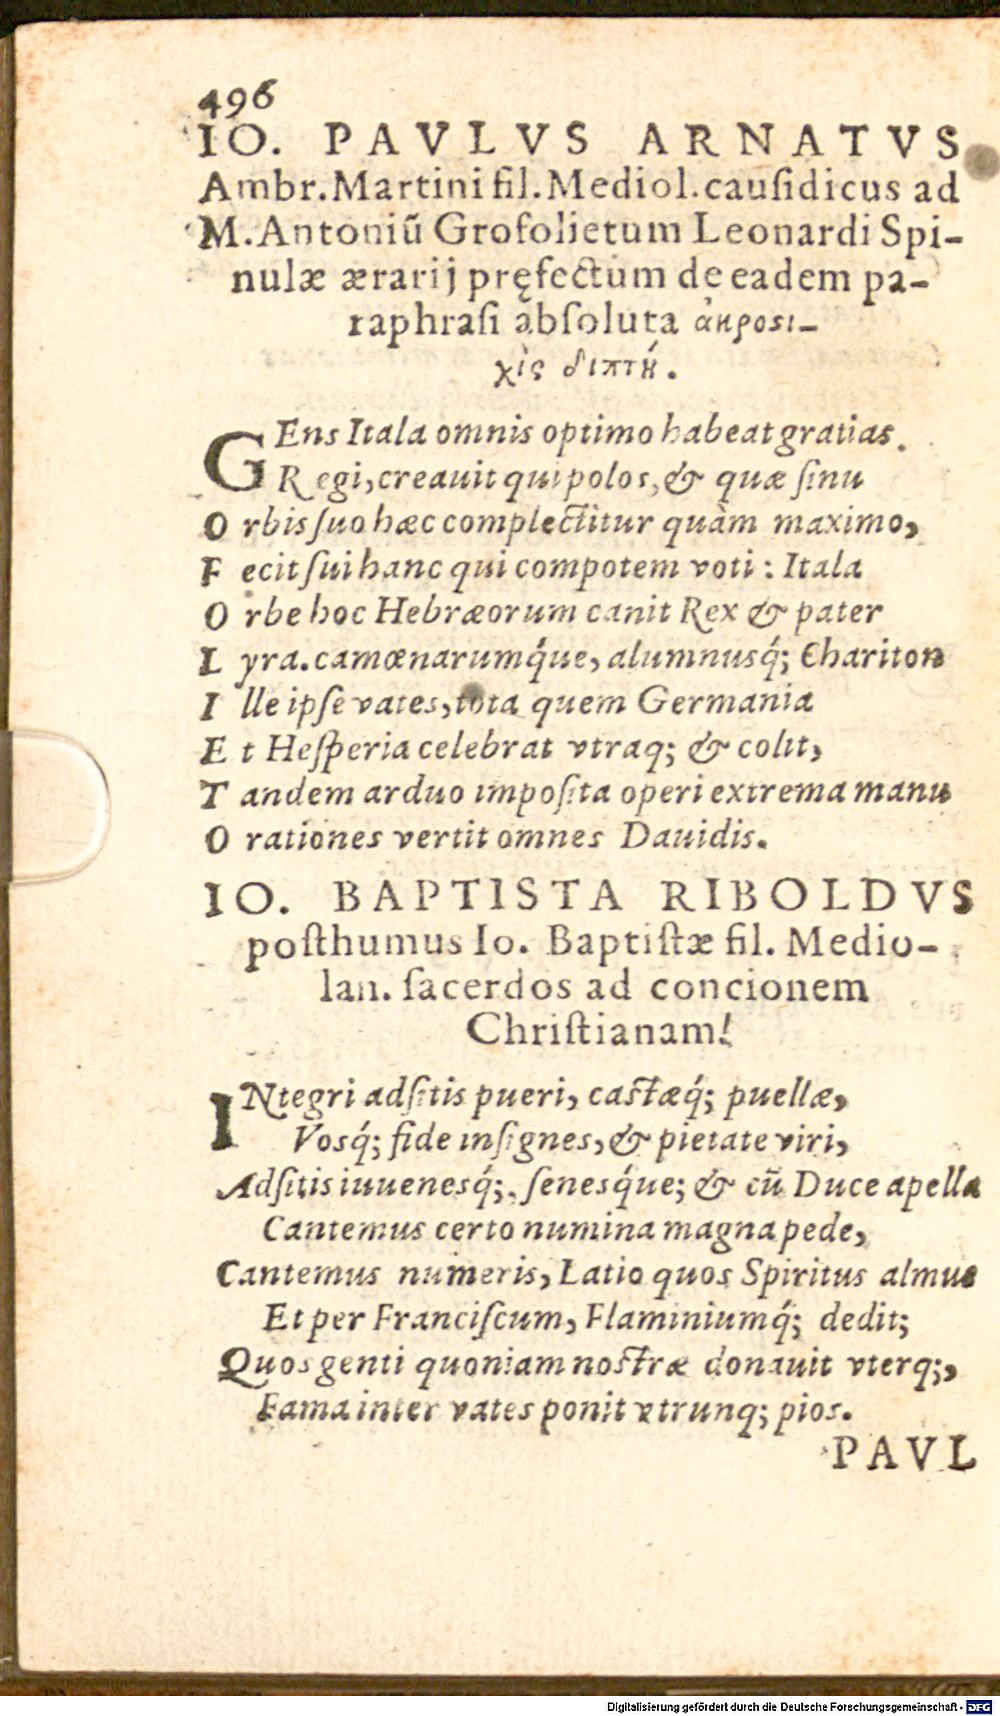 496
IO. PAVLVS ARNATVS
Ambr. Martini fil. Mediol. cauſidicus ad
M. Antoniũ Grofolietum Leonardi Spi-
nulæ ærarij pręfectum de eadem pa-
raphraſi abſoluta ἀκροσι-
χὶς διπτή.
GEns Itala omnis optimo habeat gratias.
Regi, creauit qui polos, & quæ ſinu
Orbis ſuo hæc complectitur quàm maximo,
Fecit ſui hanc qui compotem voti: Itala
Orbe hoc Hebræorum canit Rex & pater
Lyra. camœnarumq́ue, alumnusq́; Chariton
Ille ipſe vates, tota quem Germania
Et Heſperia celebrat vtraq; & colit,
Tandem arduo impoſita operi extrema manu
Orationes vertit omnes Dauidis.
IO. BAPTISTA RIBOLDVS
poſthumus Io. Baptiſtæ fil. Medio-
lan. ſacerdos ad concionem
Chriſtianam.
INtegri adſitis pueri, caſtæq́; puellæ,
Vosq́; fide inſignes, & pietate viri,
Adſitis iuuenesq́;, ſenesq́ue; & cũ Duce apella
Cantemus certo numina magna pede,
Cantemus numeris, Latio quos Spiritus almus
Et per Franciſcum, Flaminiumq́; dedit;
Quos genti quoniam noſtræ donauit vterq;,
Fama inter vates ponit vtrunq; pios.
PAVL
Digitalisierung gefördert durch die Deutsche Forschungsgemeinschaft - DFG